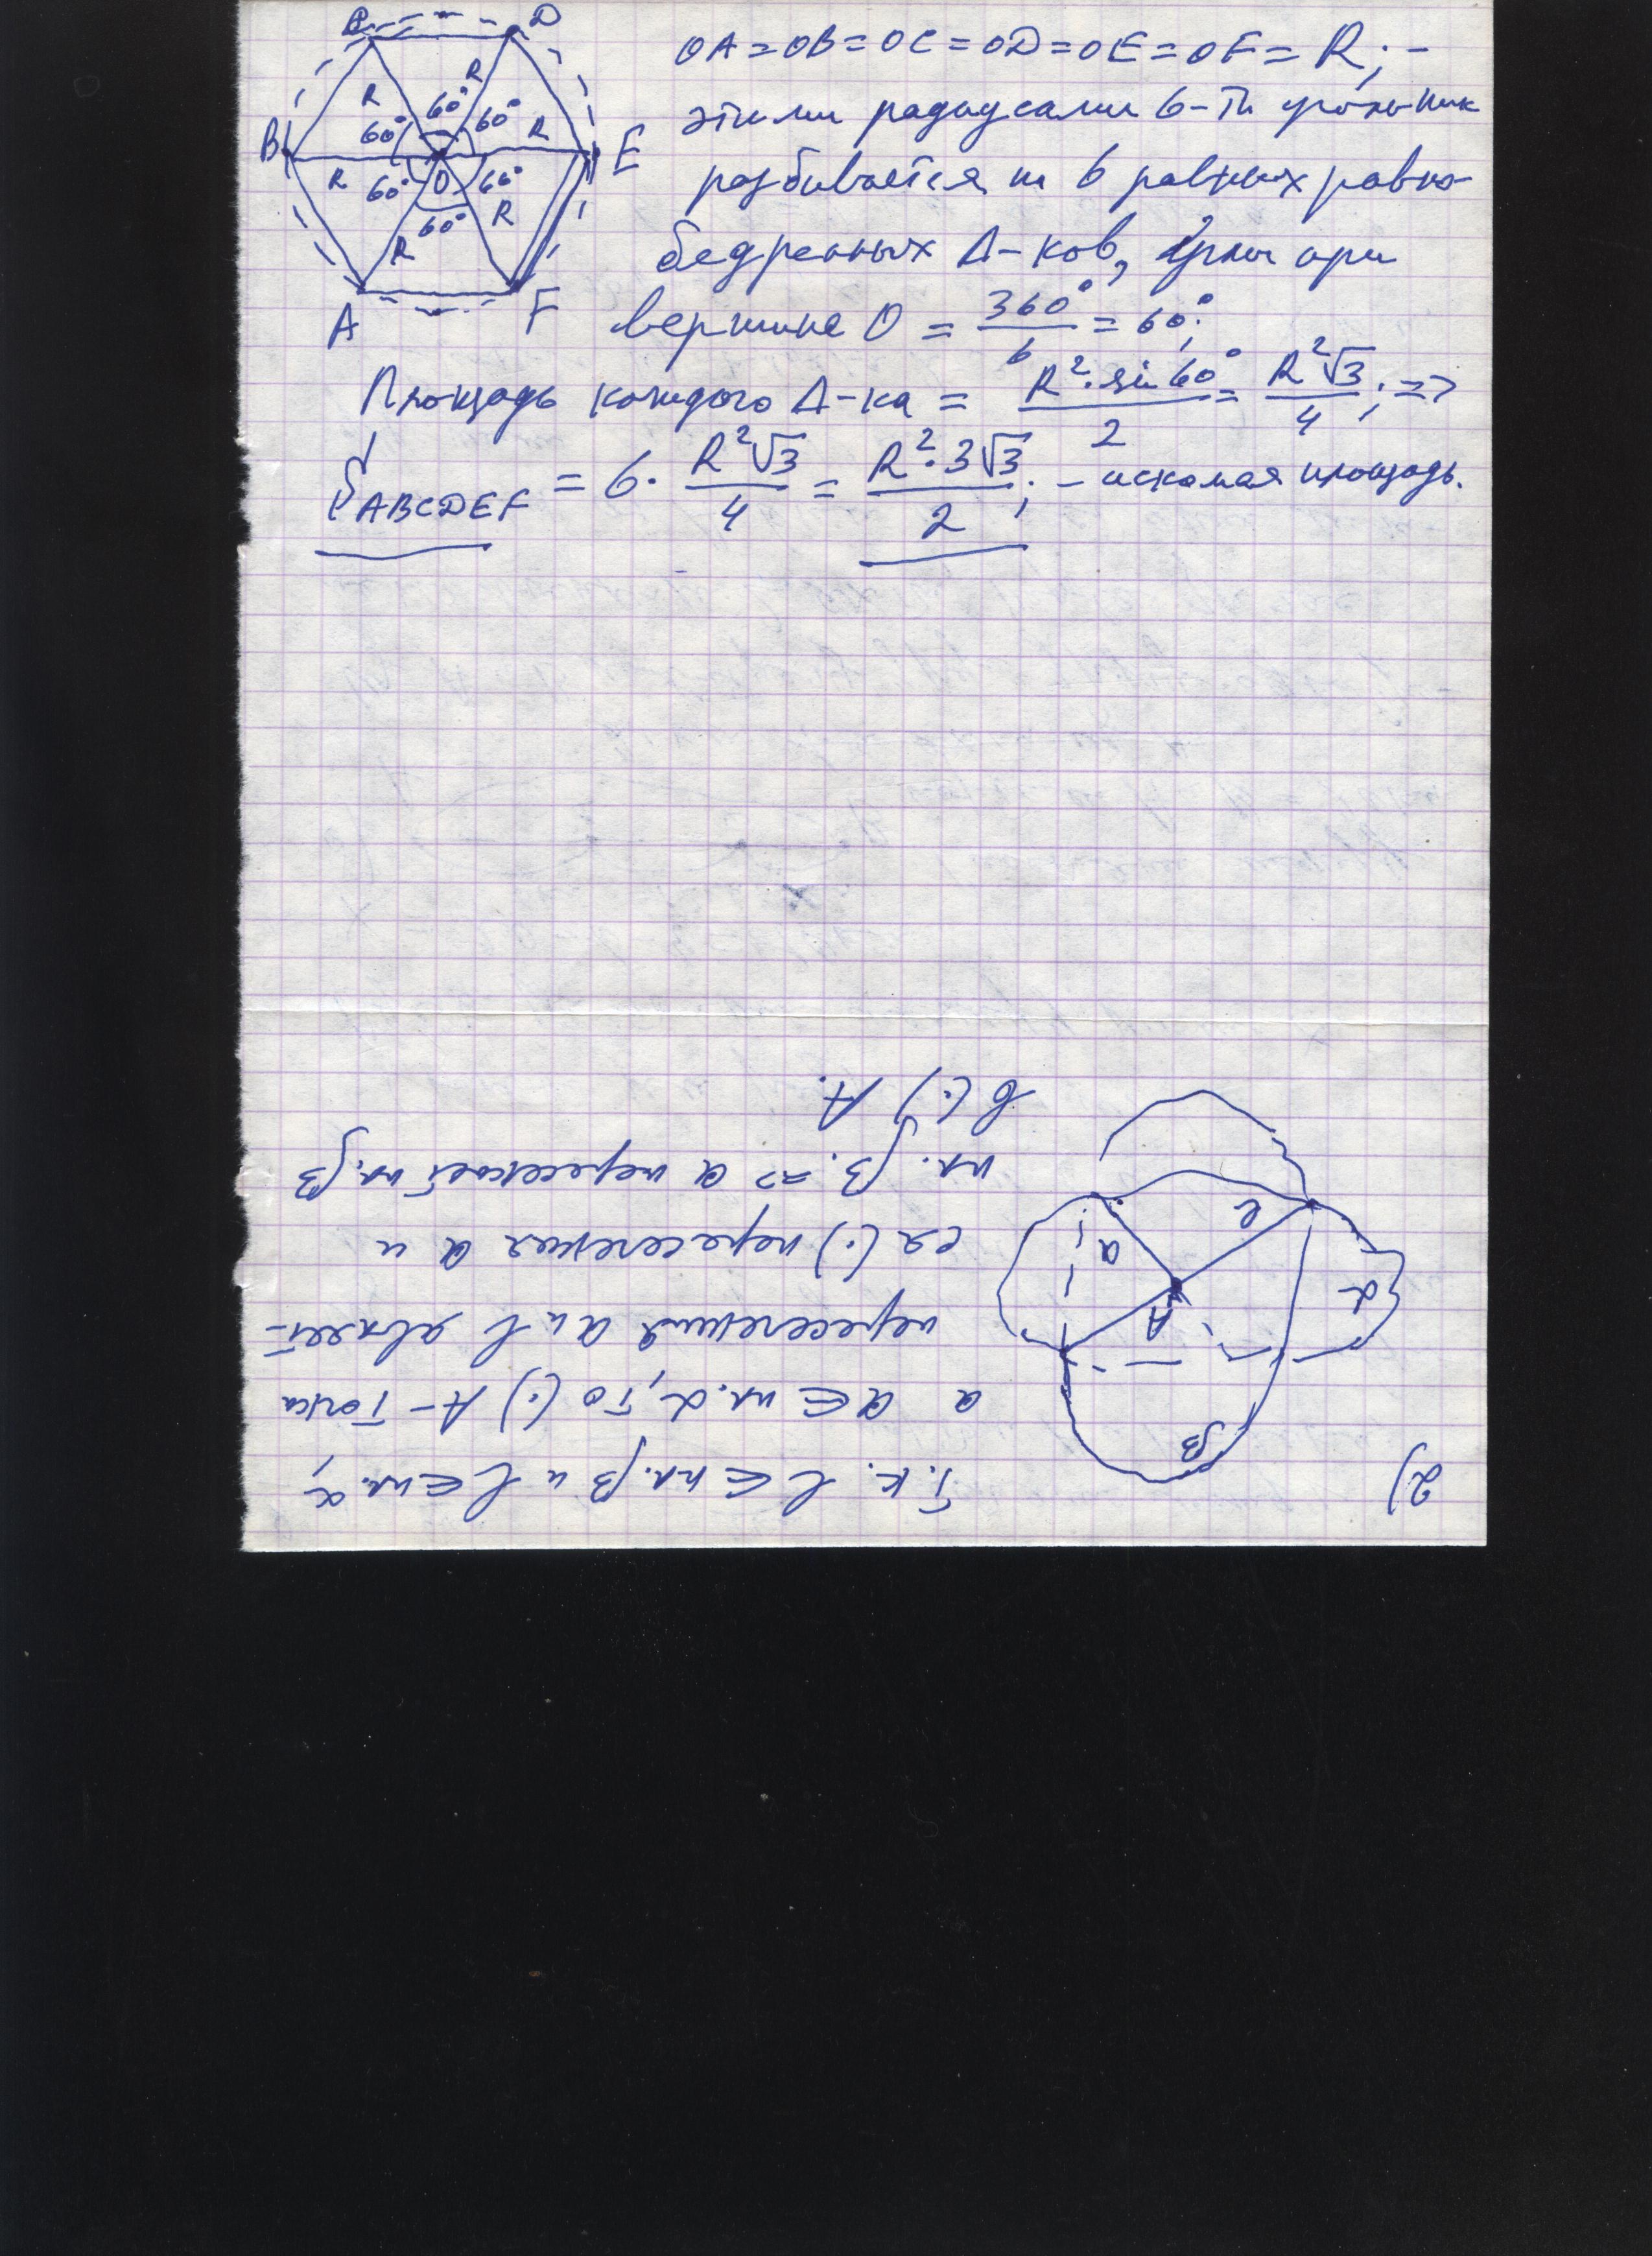 C D
B E
A F
O
R R R R R R
60° 60° 60° 60° 60° 60°
OA = OB = OC = OD = OE = OF = R; -
этими радиусами 6-ти угольник
разбивается на 6 равных равно-
бедренных Δ-ков, углы при
вершине O = 360°/6 = 60°;
Площадь каждого Δ-ка = R²·sin 60°/2 = R²√3/4; =>
S ABCDEF = 6· R²√3/4 = R²·3√3/2; - искомая площадь.
2)
β
α
A
a
l
Т.к. l ∈ пл. β и l ∈ пл. α,
а a ∈ пл. α, то (·) A - точка
пересечения a и l являет-
ся (·) пересечения a и
пл. β. => a пересекает пл. β
в (·) A.